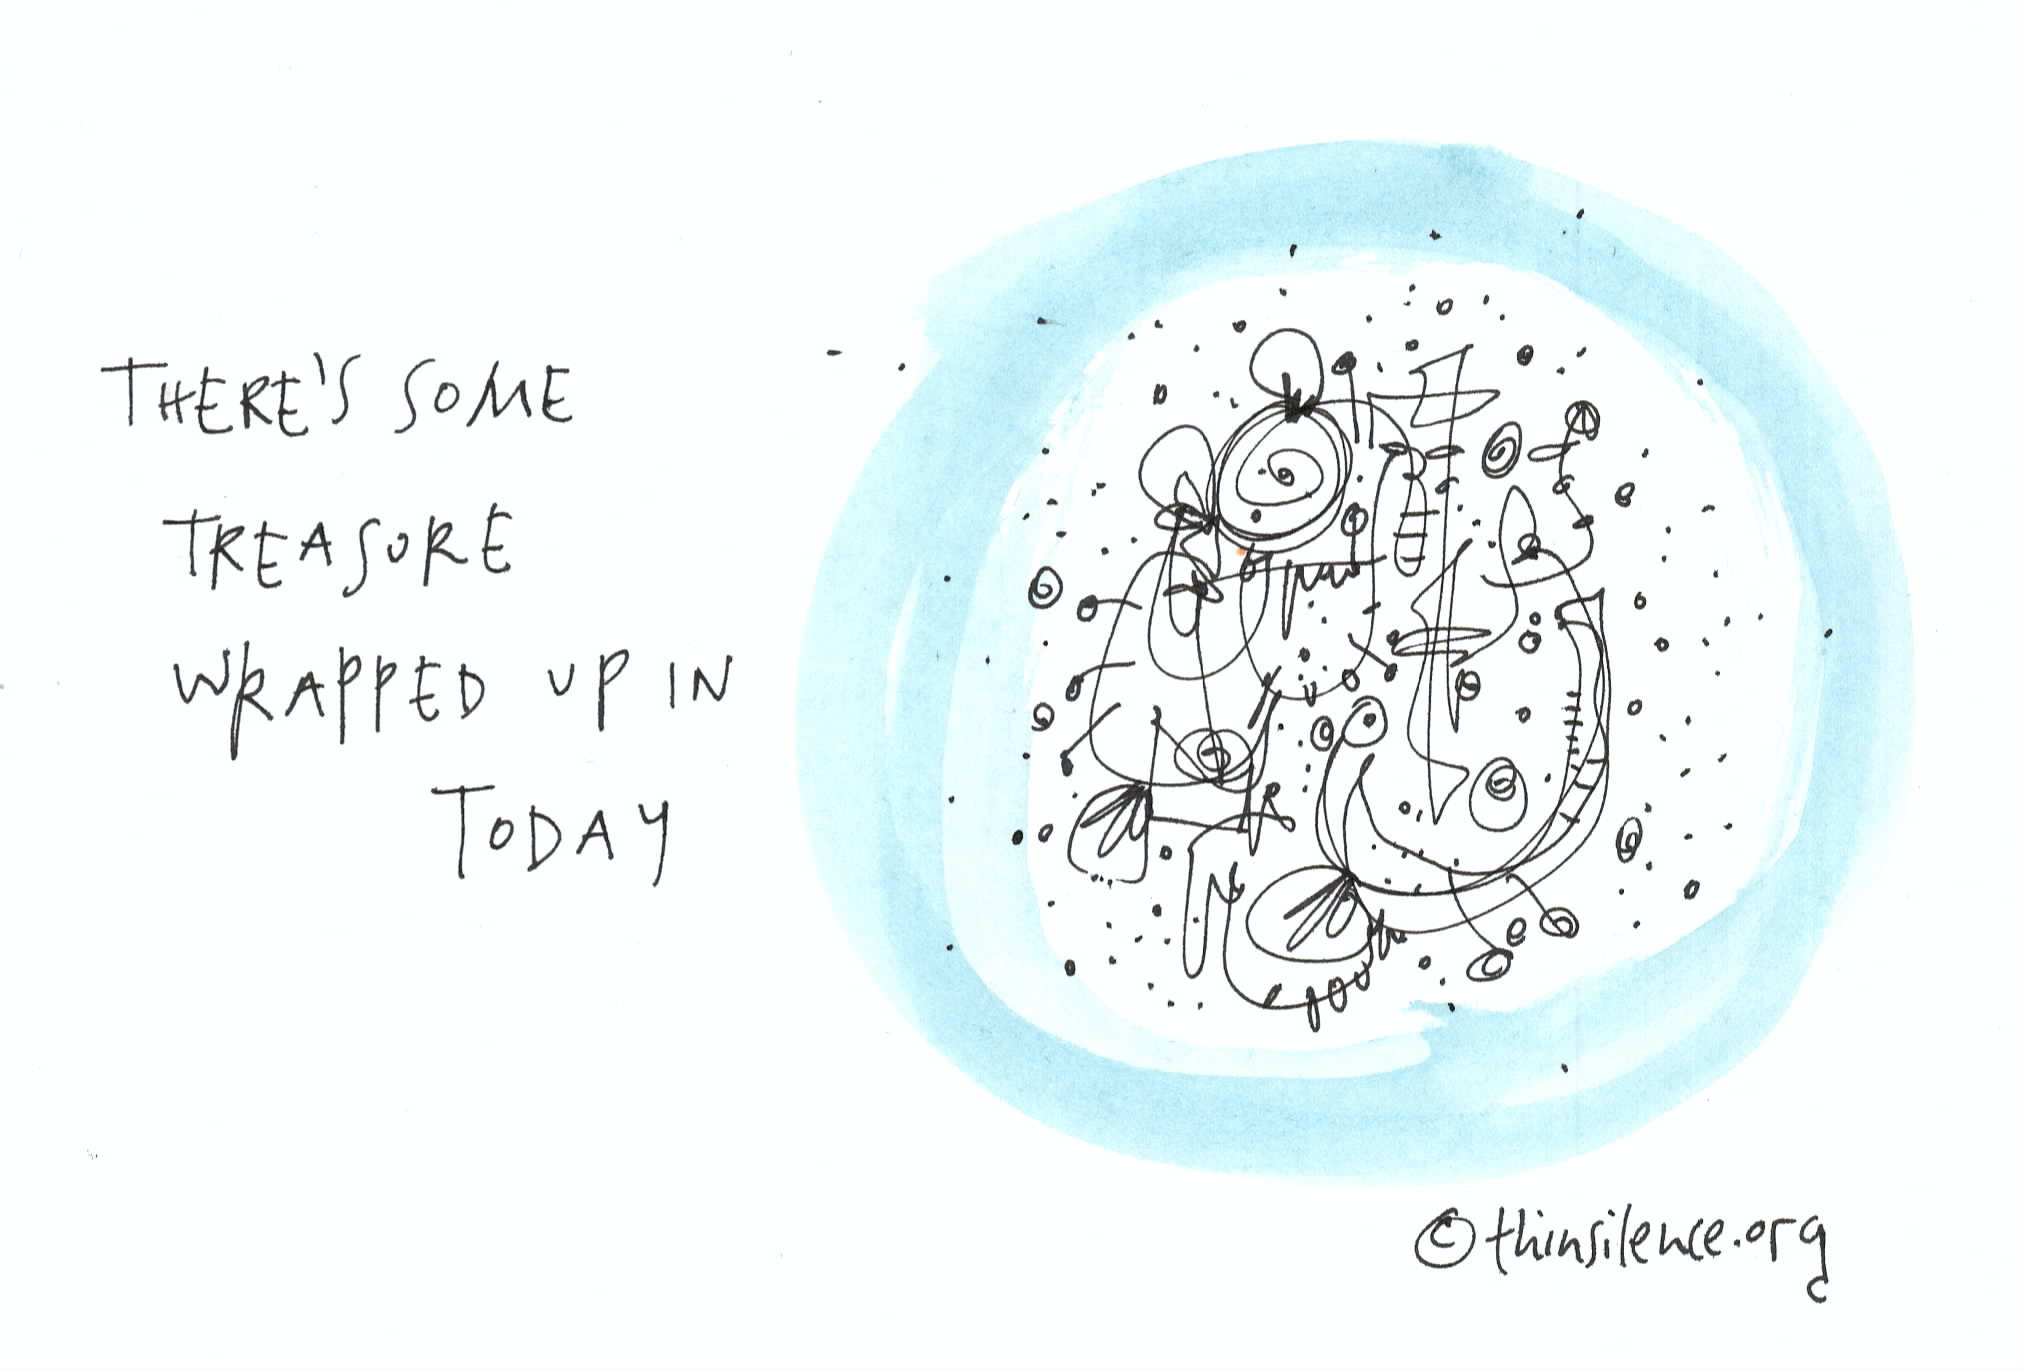 THERE'S SOME
TREASURE
WRAPPED UP IN
TODAY
©thinsilence.org